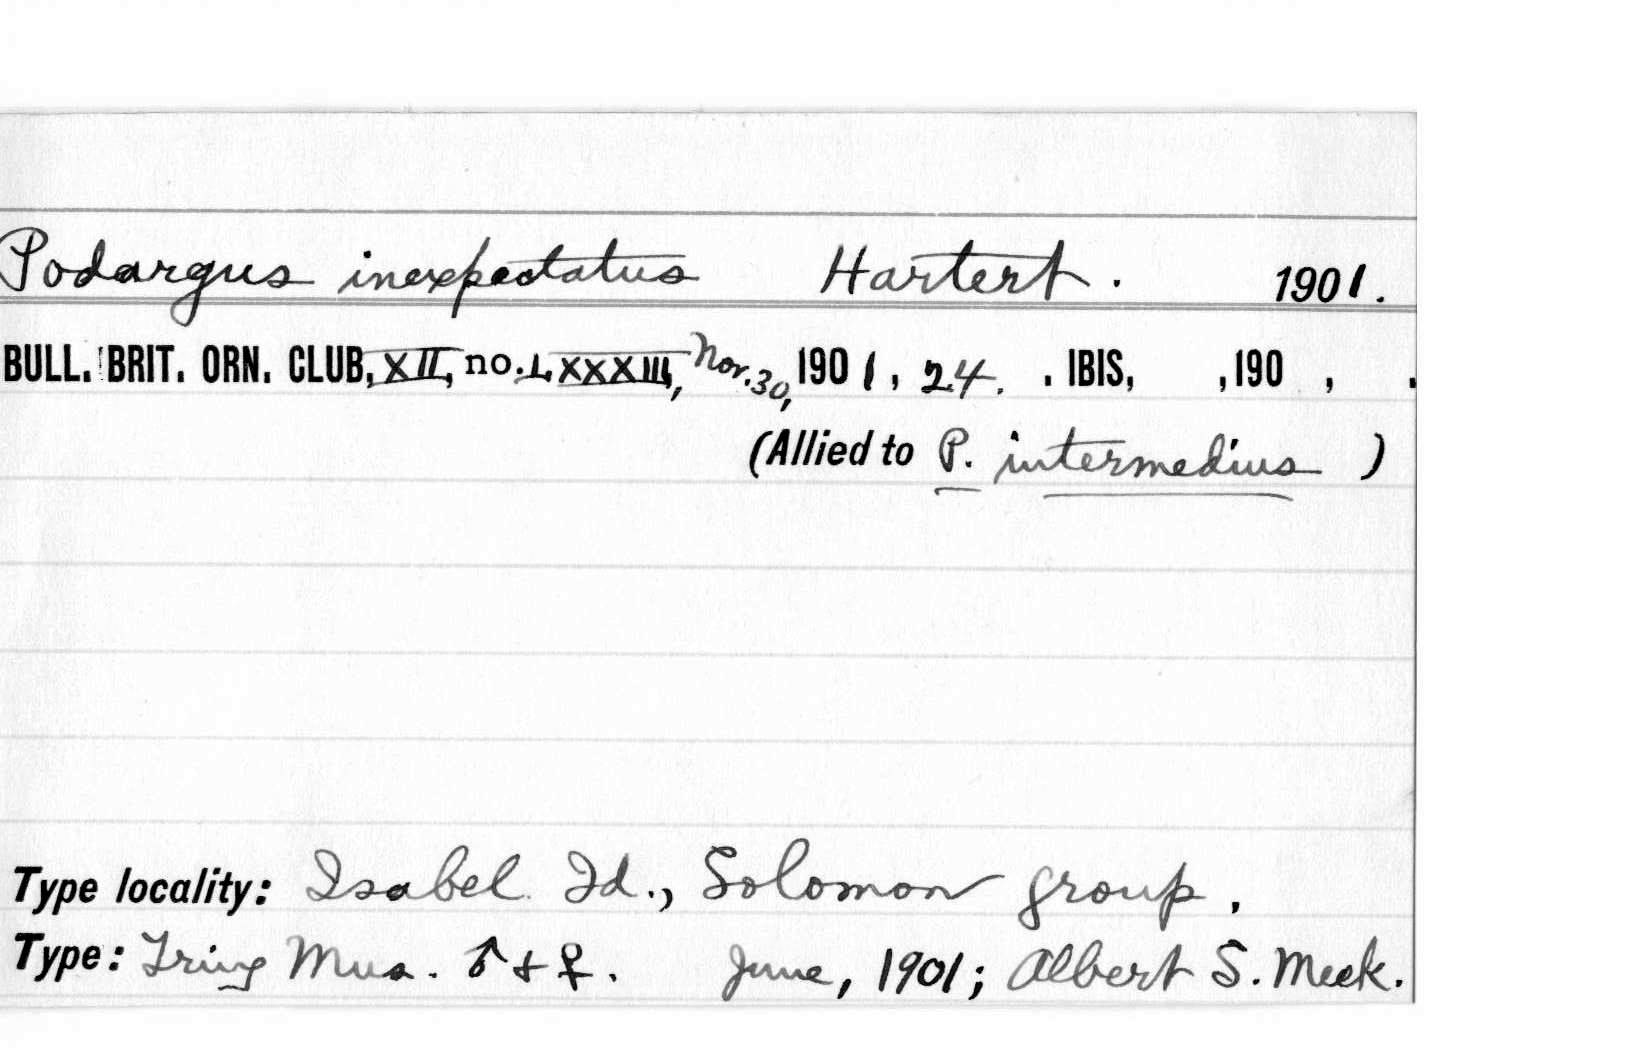 Podargus inexpectatus Hartert. 1901.
BULL. BRIT. ORN. CLUB, XII, no. LXXXIII, Nov. 30, 1901, 24. . IBIS, ,190 , .
(Allied to P. intermedius )
Type locality: Isabel Id., Solomon group.
Type: Tring Mus. ♂ + ♀. June, 1901; Albert S. Meek.